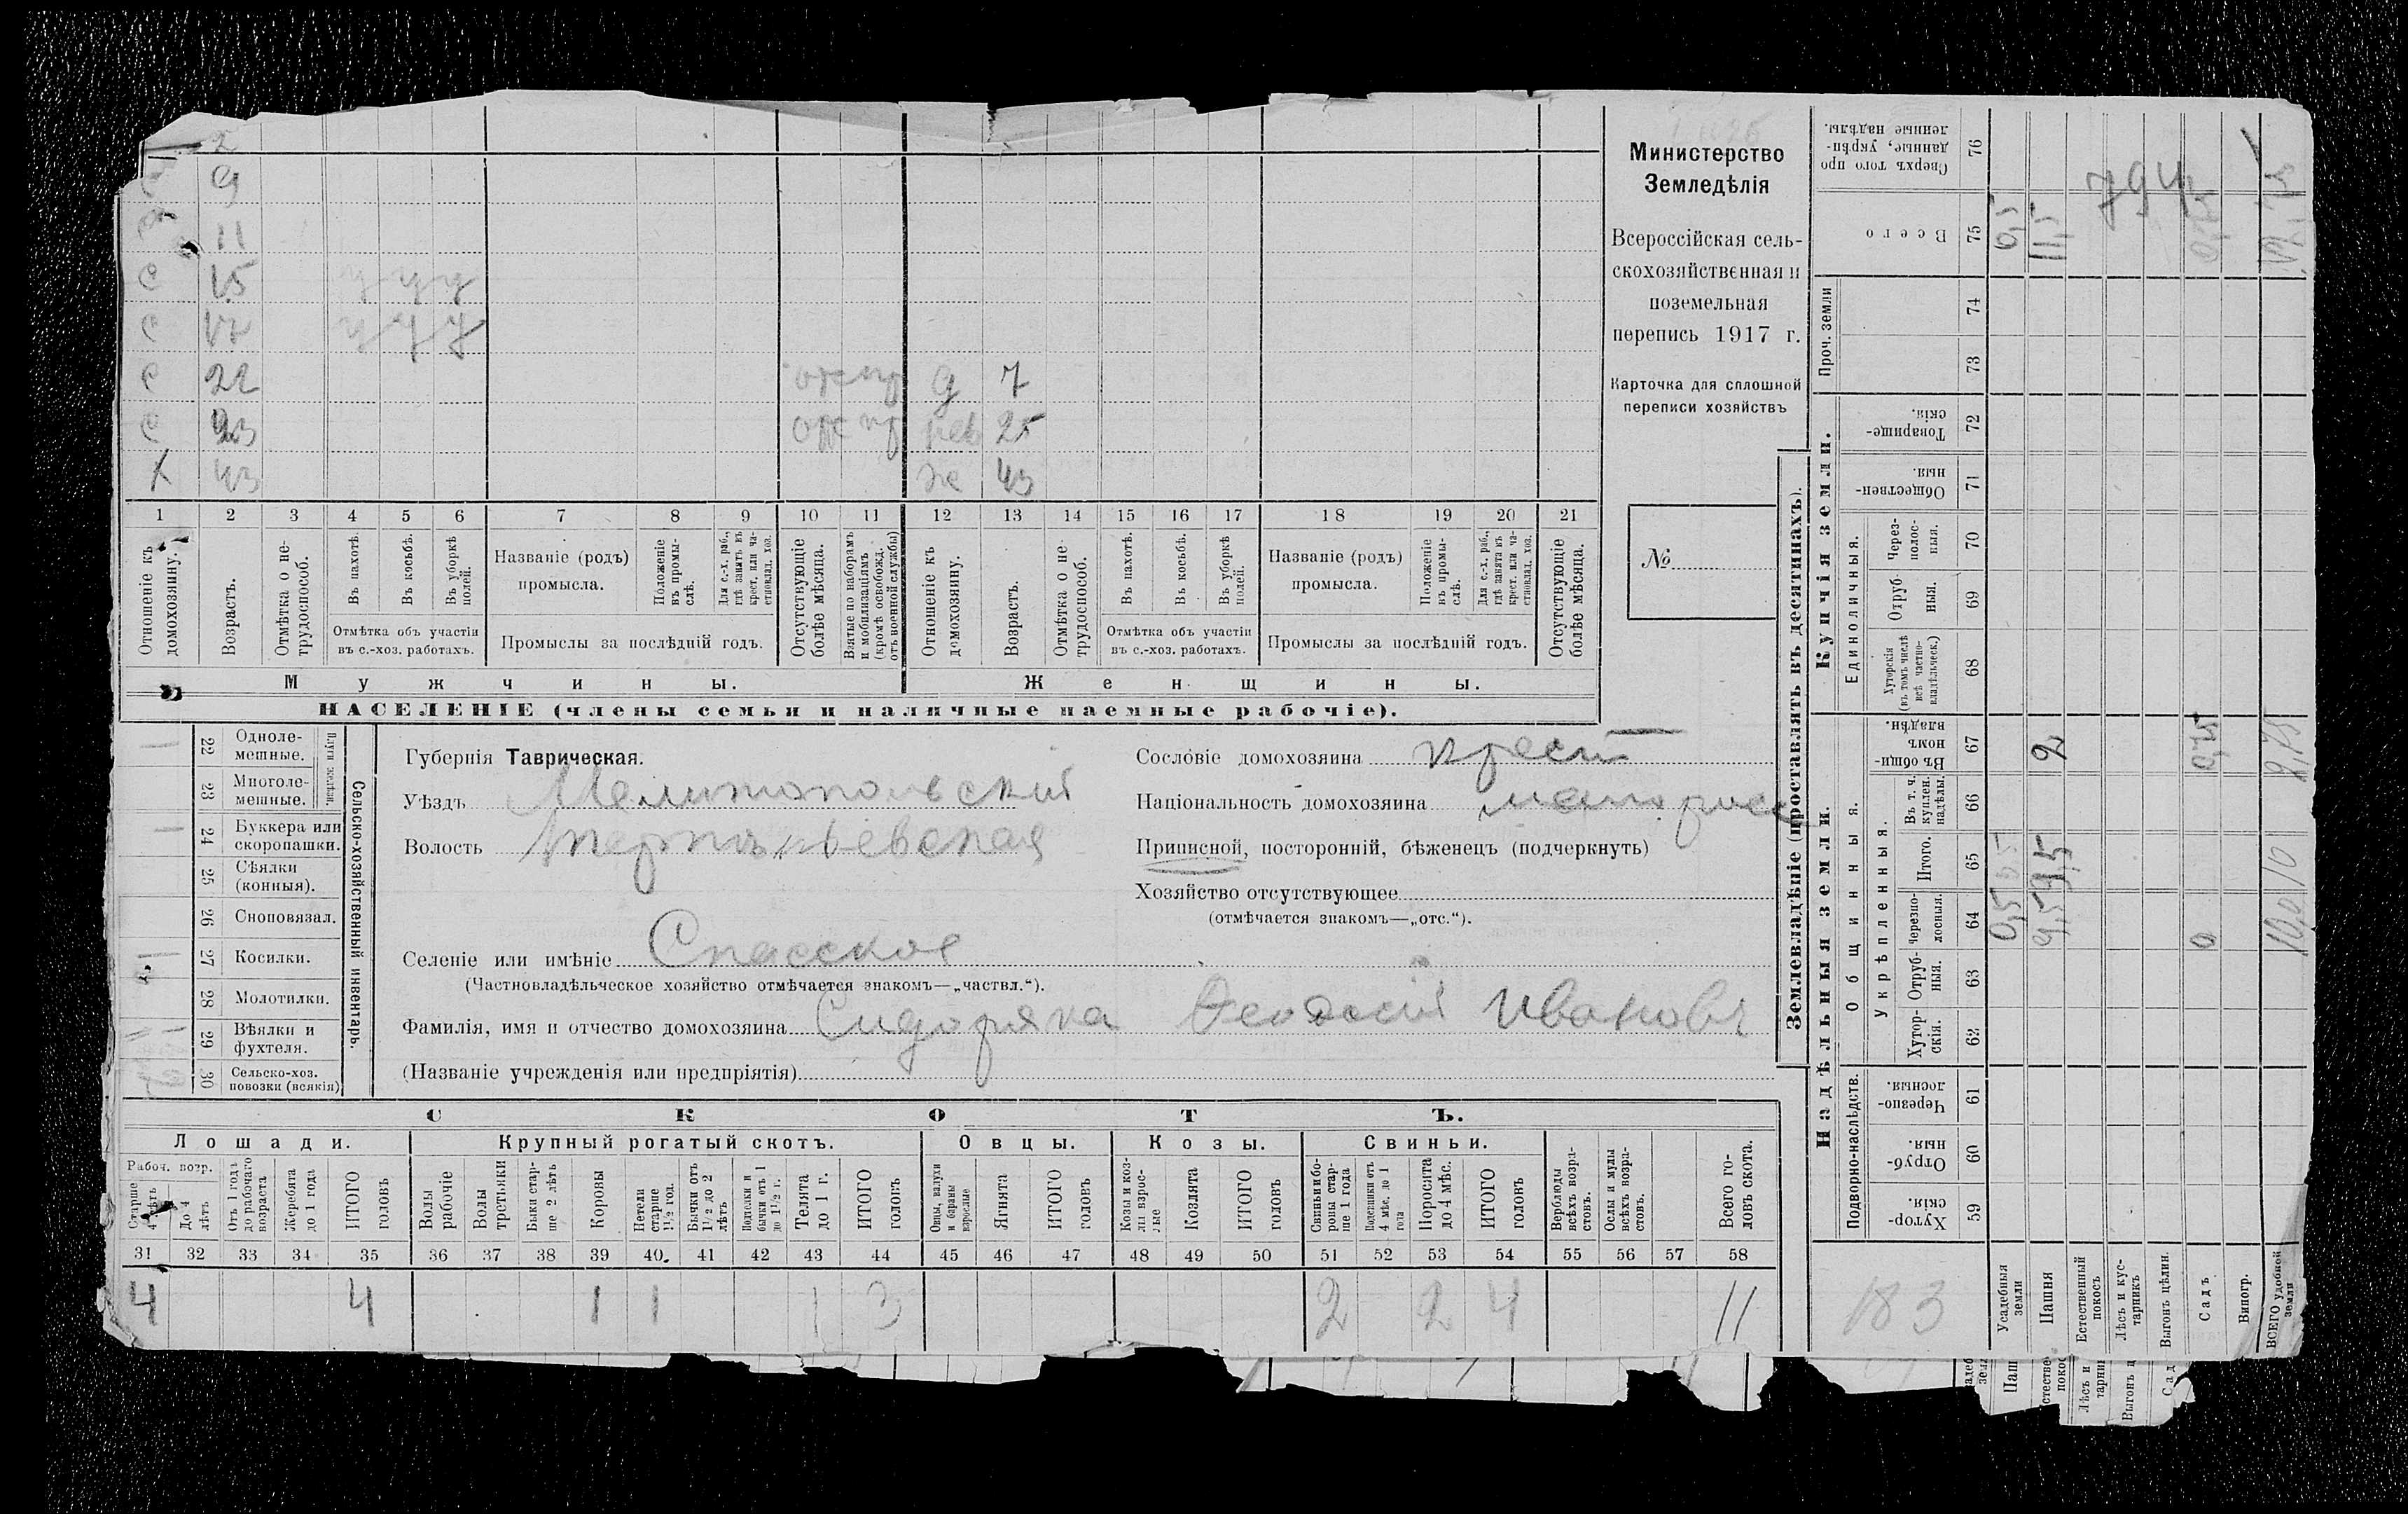 2
с 9
11
с 15 у у у
с 17 у у у
с 22 д 7
с 23 нев 25
х 43 ж 43
1 2 3 4 5 6 7 8 9 10 11 12 13 14 15 16 17 18 19 20 21
Отношеніе къ домохозяину.
Возрастъ.
Отмѣтка о нетрудоспособ.
Въ пахотѣ.
Въ косьбѣ.
Въ уборкѣ полей.
Отмѣтка объ участіи
въ с.-хоз. работахъ.
Названіе (родъ)
промысла.
Положеніе въ промыслѣ.
Для с.-х. раб., гдѣ занятъ въ крест. или частновлад. хоз.
Промыслы за послѣдній годъ.
Отсутствующіе болѣе мѣсяца.
Взятые по наборамъ и мобилизаціямъ (кромѣ освобожд. отъ военной службы)
Отношеніе къ домохозяину.
Возрастъ.
Отмѣтка о нетрудоспособ.
Въ пахотѣ.
Въ косьбѣ.
Въ уборкѣ полей.
Отмѣтка объ участіи
въ с.-хоз. работахъ.
Названіе (родъ)
промысла.
Положеніе въ промыслѣ.
Для с.-х. раб., гдѣ занята въ крест. или частновлад. хоз.
Промыслы за послѣдній годъ.
Отсутствующіе болѣе мѣсяца.
Мужчины.
Женщины.
НАСЕЛЕНІЕ (члены семьи и наличные наемные рабочіе).
Министерство
Земледѣлія
Всероссійская сель-
скохозяйственная и
поземельная
перепись 1917 г.
Карточка для сплошной
переписи хозяйствъ
№
22 Одноле-
мешные.
23 Многоле-
мешные.
Плуги желѣзн.
24 Буккера или
скоропашки.
25 Сѣялки
(конныя).
26 Сноповязал.
27 Косилки. 1
28 Молотилки.
29 Вѣялки и
фухтеля.
30 Сельско-хоз.
повозки (всякія)
Сельско-хозяйственный инвентарь.
Губернія Таврическая.
Уѣздъ Мелитопольскій
Волость Терпѣньевская
Селеніе или имѣніе Спасское
(Частновладѣльческое хозяйство отмѣчается знакомъ—„частвл.“).
Фамилія, имя и отчество домохозяина Сидоряка Феодосій Ивановъ
(Названіе учрежденія или предпріятія)
Сословіе домохозяина крест
Національность домохозяина малоросс
Приписной, посторонній, бѣженецъ (подчеркнуть)
Хозяйство отсутствующее
(отмѣчается знакомъ—„отс.“).
СКОТЪ.
Лошади. Крупный рогатый скотъ. Овцы. Козы. Свиньи.
Рабоч. возр.
Старше 4 лѣтъ
До 4 лѣтъ
Отъ 1 года до рабочаго возраста
Жеребята до 1 года
ИТОГО головъ
Волы рабочіе
Волы третьяки
Быки старше 2 лѣтъ
Коровы
Нетели старше 1½ год.
Бычки отъ 1½ до 2 лѣтъ
Подтелки и бычки отъ 1 до 1½ г.
Телята до 1 г.
ИТОГО головъ
Овцы, валухи и бараны взрослые
Ягнята
ИТОГО головъ
Козы и козлы взрослые
Козлята
ИТОГО головъ
Свиньи и боровы старше 1 года
Подсвинки отъ 4 мѣс. до 1 года
Поросята до 4 мѣс.
ИТОГО головъ
Верблюды всѣхъ возрастовъ.
Ослы и мулы всѣхъ возрастовъ.
Всего головъ скота.
31 32 33 34 35 36 37 38 39 40. 41 42 43 44 45 46 47 48 49 50 51 52 53 54 55 56 57 58
4 4 1 1 1 3 2 2 4 11
Землевладѣніе (проставлять въ десятинахъ).
Надѣльныя земли.
Купчія земли.
Проч. земли
Подворно-наслѣдств.
Общинныя.
Укрѣпленныя.
Единоличныя.
Хуторскія. 59
Отрубныя. 60
Черезполосныя. 61
Хуторскія. 62
Отрубныя. 63
Черезполосныя. 64
Итого. 65
Въ т. ч. куплен. надѣлы. 66
Въ общинномъ владѣн. 67
Хуторскія (въ томъ числѣ всѣ частновладѣльческ.) 68
Отрубныя. 69
Черезполосныя. 70
Общественныя. 71
Товарищескія. 72
73
74
Всего 75
Сверхъ того проданные, укрѣпленные надѣлы. 76
Усадебныя земли 0,5 0,5 0,5
Пашня 9,5 9,5 2 11,5
Естественный покосъ
Лѣсъ и кустарникъ
Выгонъ цѣлин.
Садъ
Виногр.
ВСЕГО удобной земли
794
183